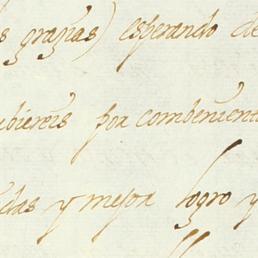 s graz̃as) esperando de
ubiereis por combenient
das y mejor logro y